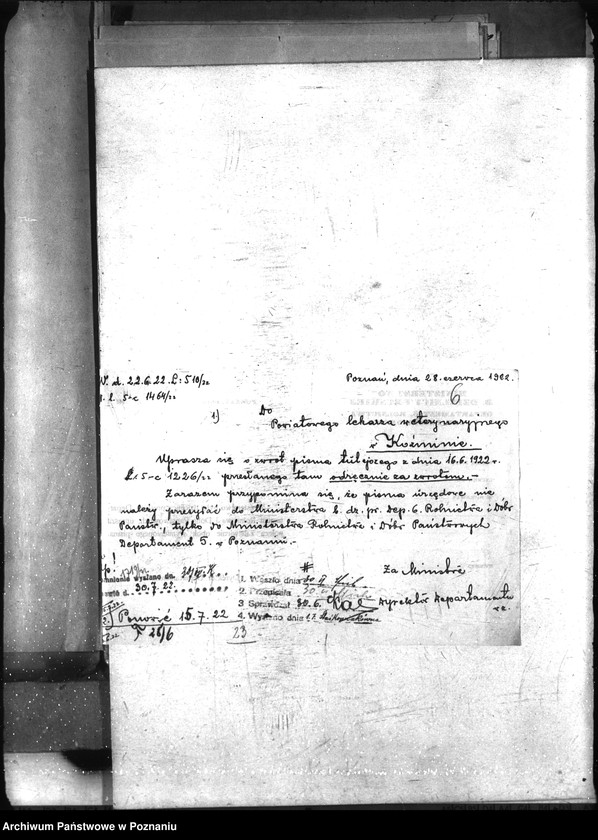 W. d. 22.6.22. L: 510/22
Poznań, dnia 28. czerwca 1922.
5-c 1464/22
6
1) Do
Powiatowego lekarza weterynaryjnego
w Koźminie.
Uprasza się o zwrot pisma tutejszego z dnia 16.6.1922 r.
L: 5-c 1226/22 przesłanego tam odręcznie za zwrotem.-
Zarazem przypomina się, że pisma urzędowe nie
należy przesyłać do Ministerstwa b. dz. pr. Dep. 6. Rolnictwa i Dóbr
Państw., tylko do Ministerstwa Rolnictwa i Dóbr Państwowych
Departament 5. w Poznaniu.-
Za Ministra
Dyrektor Departamentu
wysłano dn.
30.7.22.
1. Weszło dnia
2. Przepisała
3 Sprawdził 30.6.
4. Wysłano dnia
Ponowić 15.7.22
26/6
23
Archiwum Państwowe w Poznaniu